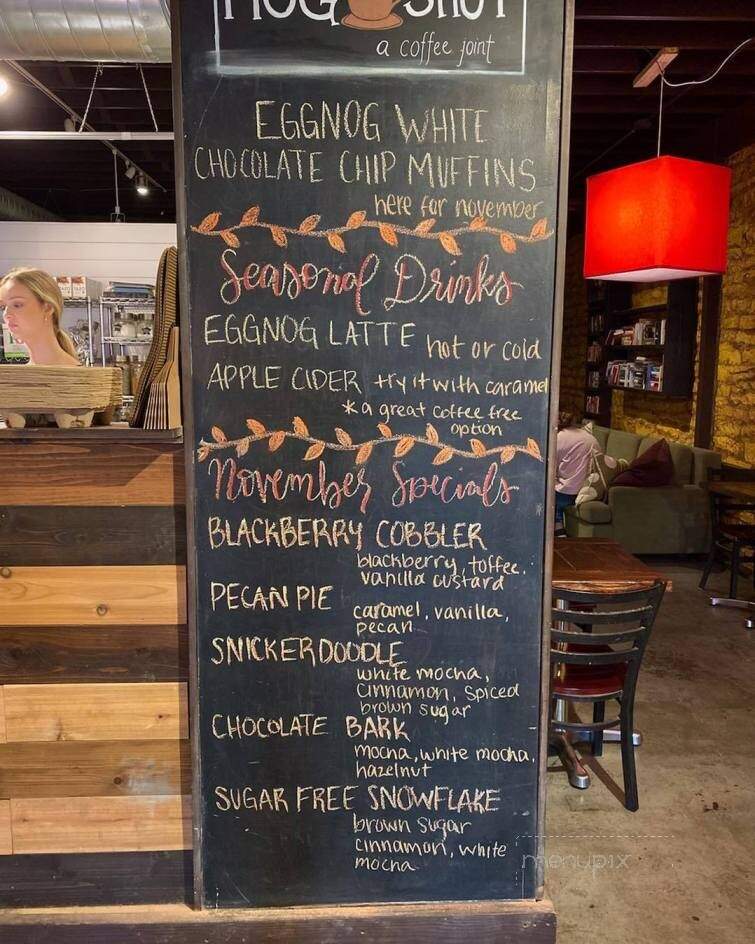 a coffee joint
EGGNOG WHITE
CHOCOLATE CHIP MUFFINS
here for november
Seasonal Drinks
EGGNOG LATTE hot or cold
APPLE CIDER try it with caramel
*a great coffee free
option
November Specials
BLACKBERRY COBBLER
blackberry, toffee,
vanilla custard
PECAN PIE
caramel, vanilla,
pecan
SNICKERDOODLE
white mocha,
cinnamon, spiced
brown sugar
CHOCOLATE BARK
mocha, white mocha,
hazelnut
SUGAR FREE SNOWFLAKE
brown sugar
cinnamon, white
mocha
menupix